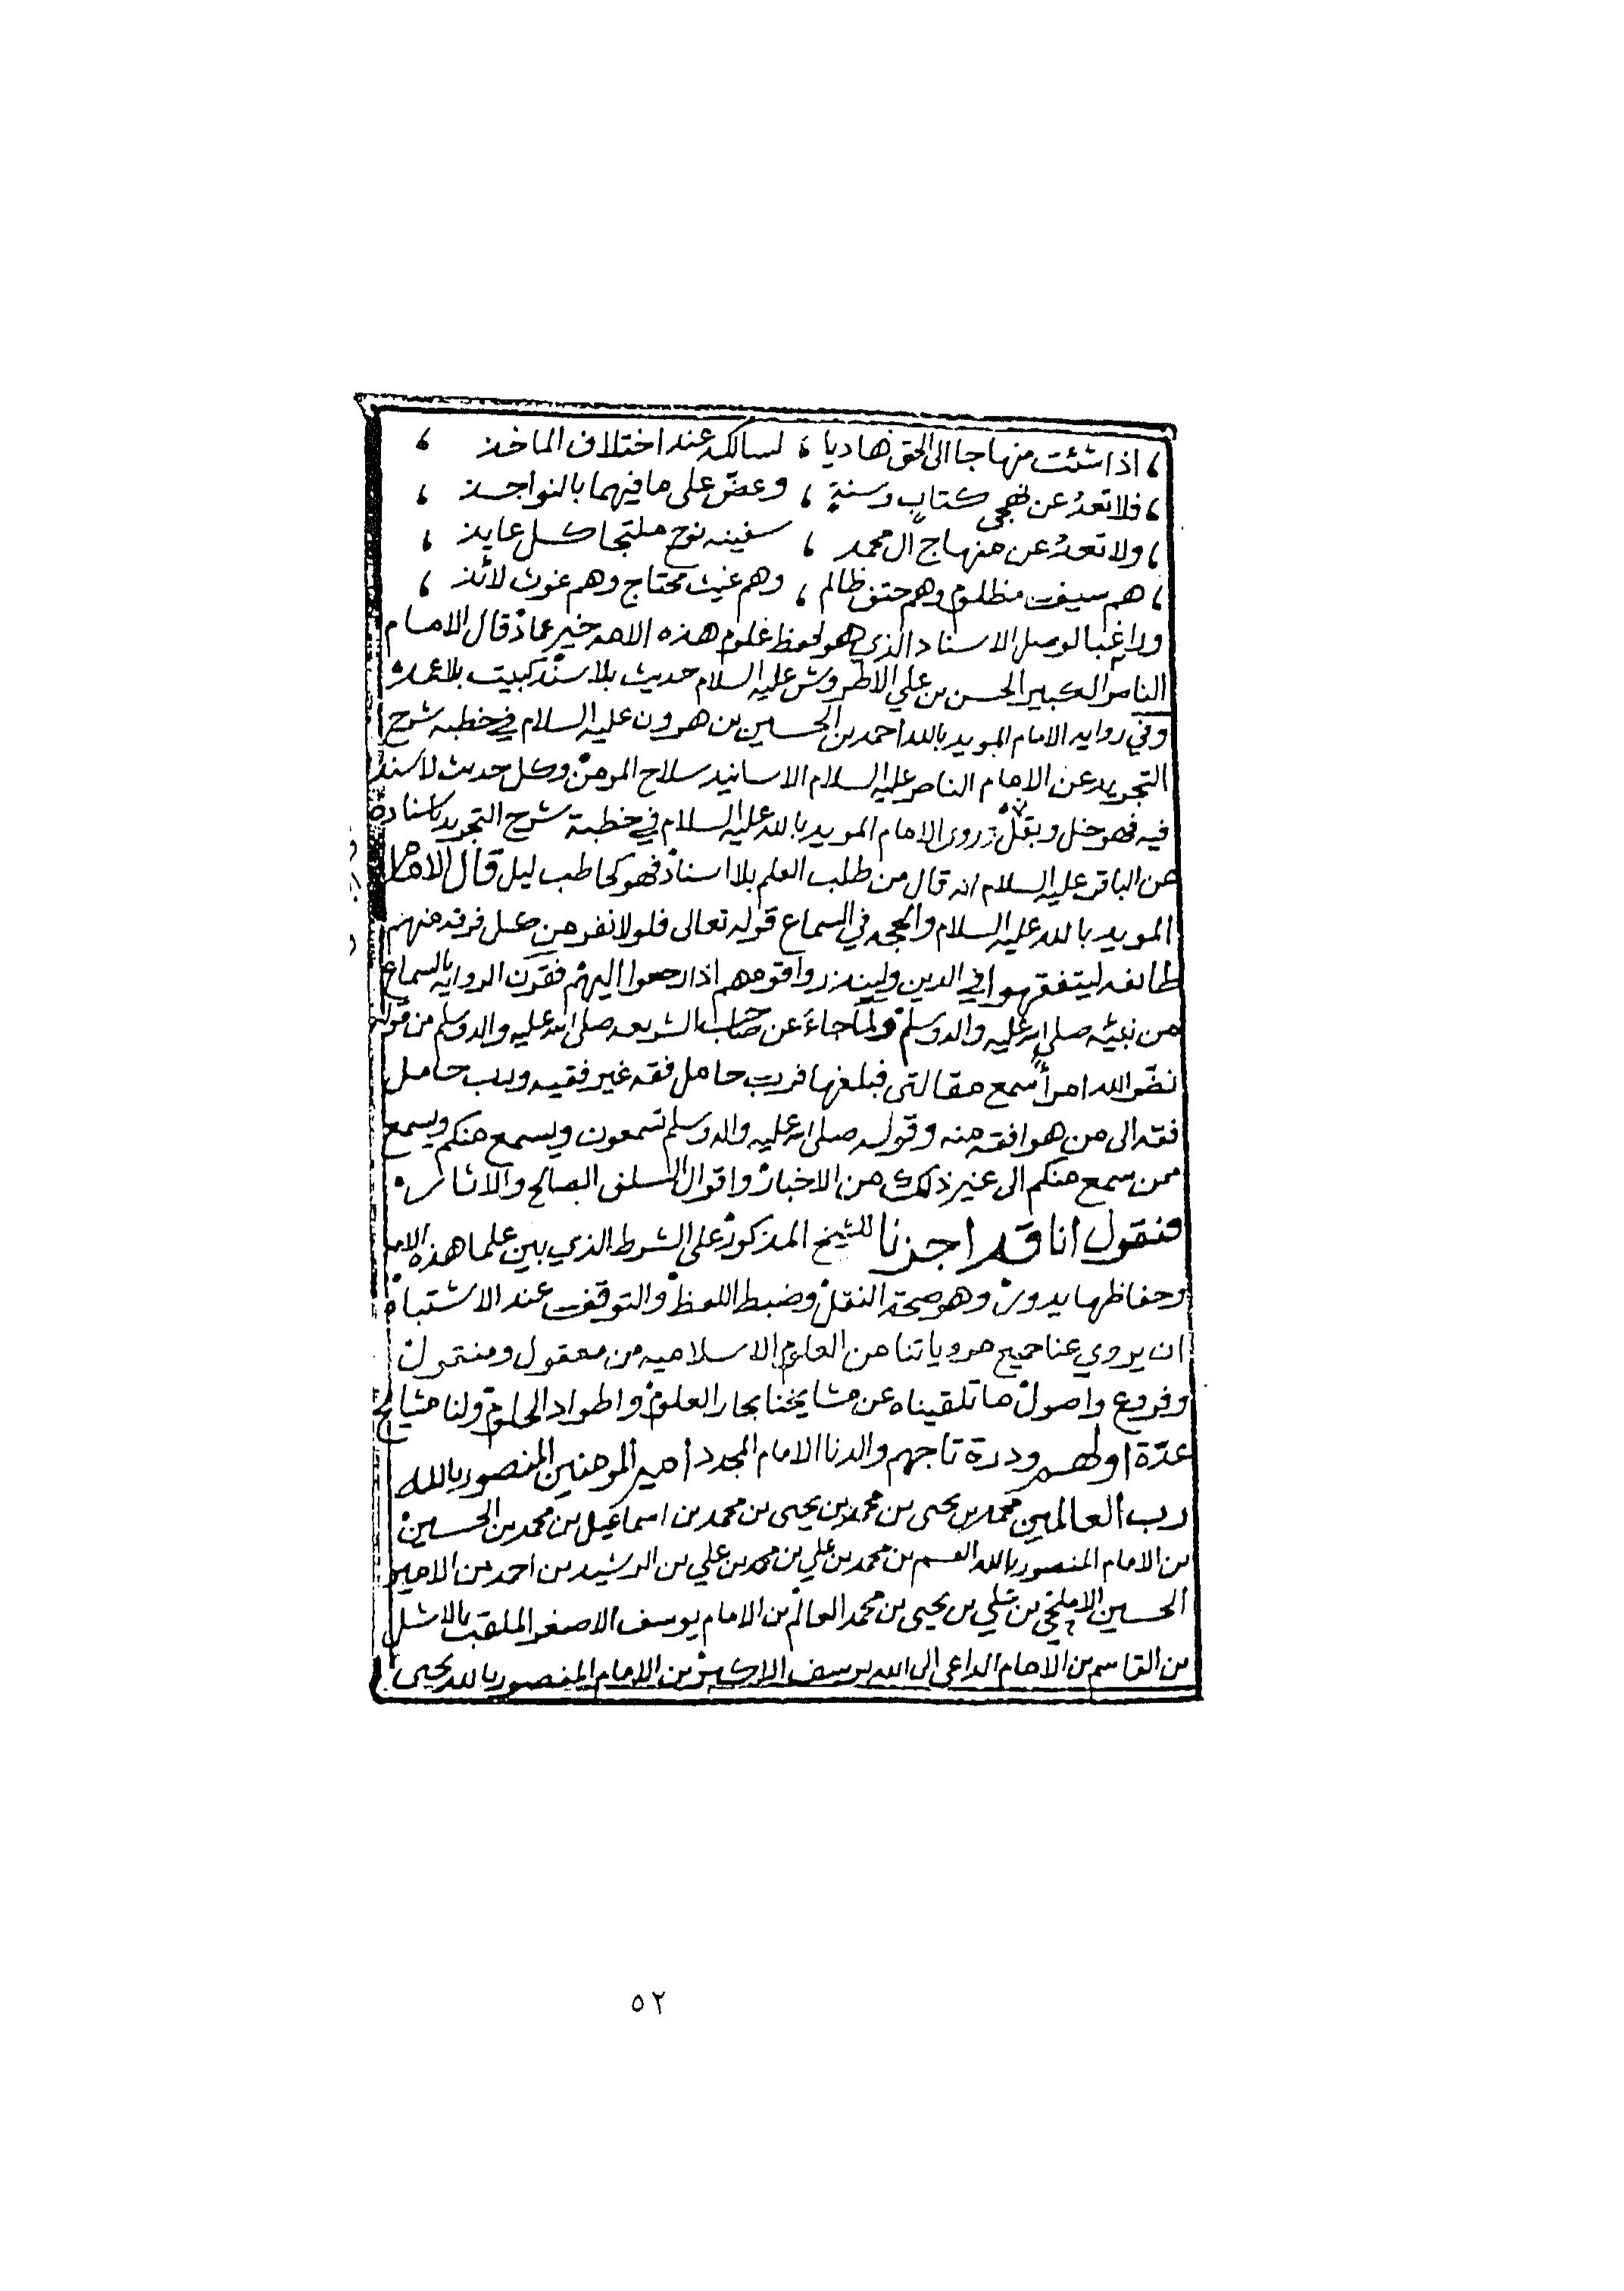 ، اذا شئت منهاجا الى الحق هاديا ، لسالكه عند اختلاف الماخذ ،
، فلا تعدُ عن نهجي كتابٍ وسنةٍ ، وعضّ على ما فيهما بالنواجذ ،
، ولا تعدُ عن منهاج ال محمد ، سفينه نوح ملتجا كل عايذ ،
، هم سيف مظلوم وهم حتف ظالم ، وهم غيث محتاج وهم غوث لائذ ،
وراغبا لوصل الاسناد الذي هو لحفظ علوم هذه الامه خير عماد قال الامام
الناصر الكبير الحسن بن علي الاطروش عليه السلام حديث بلا سند كبيت بلا عمد
وفي روايه الامام المويد بالله احمد بن الحسين بن هرون عليه السلام في خطبه شرح
التجريد عن الامام الناصر عليه السلام الاسانيد سلاح المومن وكل حديث لا سند
فيه فهو خل وبقل وروى الامام المويد بالله عليه السلام في خطبة شرح التجريد باسناده
عن الباقر عليه السلام انه قال من طلب العلم بلا اسناد فهو كحاطب ليل قال الامام
المويد بالله عليه السلام والحجه في السماع قوله تعالى فلولا نفر من كل فرقه منهم
طائفه ليتفقهوا في الدين ولينذروا قومهم اذا رجعوا اليهم فقرن الروايه بالسماع
من نبيّه صلى الله عليه واله وسلم ولما جاءَ عن صاحب الشريعه صلى الله عليه واله وسلم من قوله
نضّر الله امرأً سمع مقالتي فبلغها فرب حامل فقه غير فقيه ورب حامل
فقه الى من هو افقه منه وقوله صلى الله عليه واله وسلم تسمعون ويسمع منكم ويسمع
ممن سمع منكم الى غير ذلك من الاخبار واقوال السلف الصالح والاثار
فنقول انا قد اجزنا للشيخ المذكور على الشرط الذي بين علما هذه الامه
وحفاظها يدور وهو صحة النقل وضبط اللفظ والتوقف عند الاشتباه
ان يروي عنا جميع مروياتنا من العلوم الاسلاميه من معقول ومنقول
وفروع واصول ما تلقيناه عن مشايخنا بحار العلوم واطواد الحلوم ولنا مشايخ
عدّة اولهم ودرة تاجهم والدنا الامام المجدد امير المومنين المنصور بالله
رب العالمين محمد بن يحيى بن محمد بن يحيى بن محمد بن اسماعيل بن محمد بن الحسين
بن الامام المنصور بالله القسم بن محمد بن علي بن محمد بن علي بن الرشيد بن احمد بن الامير
الحسين الاملحي بن علي بن يحيى بن محمد العالم بن الامام يوسف الاصغر الملقب بالاشل
بن القاسم بن الامام الداعي الى الله يوسف الاكبر بن الامام المنصور بالله يحيى
٥٢